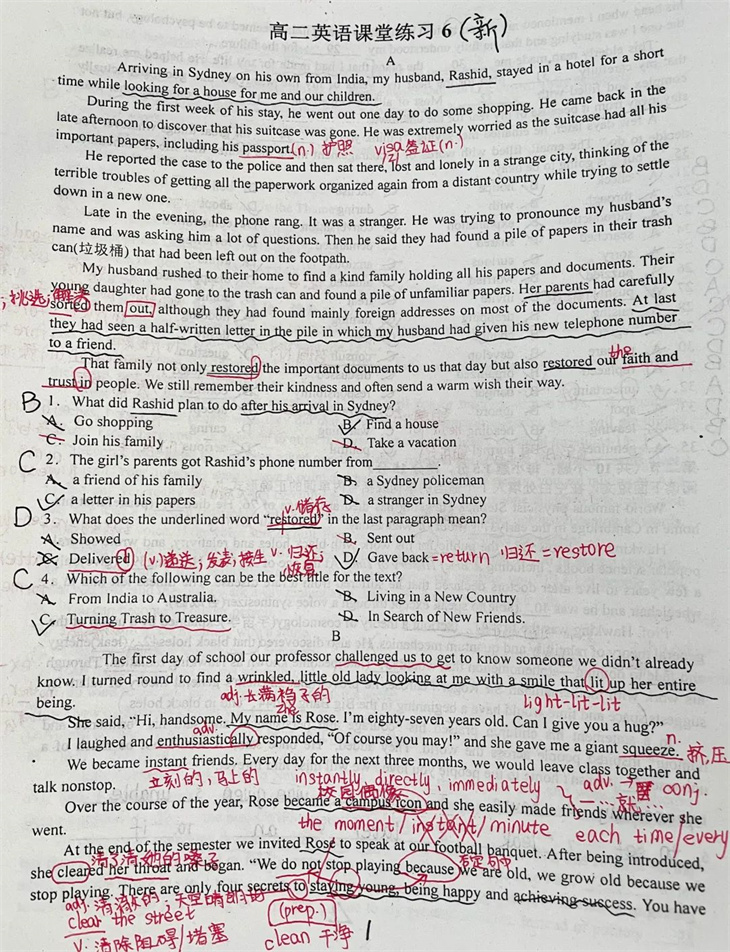 高二英语课堂练习 6 (新)
A
Arriving in Sydney on his own from India, my husband, Rashid, stayed in a hotel for a short
time while looking for a house for me and our children.
During the first week of his stay, he went out one day to do some shopping. He came back in the
late afternoon to discover that his suitcase was gone. He was extremely worried as the suitcase had all his
important papers, including his passport. (n.) 护照 visa 签证(n.)
He reported the case to the police and then sat there, lost and lonely in a strange city, thinking of the
terrible troubles of getting all the paperwork organized again from a distant country while trying to settle
down in a new one.
Late in the evening, the phone rang. It was a stranger. He was trying to pronounce my husband's
name and was asking him a lot of questions. Then he said they had found a pile of papers in their trash
can(垃圾桶) that had been left out on the footpath.
My husband rushed to their home to find a kind family holding all his papers and documents. Their
young daughter had gone to the trash can and found a pile of unfamiliar papers. Her parents had carefully
挑选;解决
sorted them out, although they had found mainly foreign addresses on most of the documents. At last
they had seen a half-written letter in the pile in which my husband had given his new telephone number
to a friend.
the
That family not only restored the important documents to us that day but also restored our faith and
trust in people. We still remember their kindness and often send a warm wish their way.
B 1. What did Rashid plan to do after his arrival in Sydney?
A. Go shopping B. Find a house
C. Join his family D. Take a vacation
C 2. The girl's parents got Rashid's phone number from__________.
A. a friend of his family B. a Sydney policeman
C. a letter in his papers D. a stranger in Sydney
v. 储存
D 3. What does the underlined word "restored" in the last paragraph mean?
A. Showed B. Sent out
C. Delivered (v.)递送;发表;接生 v. 归还; 恢复 D. Gave back =return 归还=restore
C 4. Which of the following can be the best title for the text?
A. From India to Australia. B. Living in a New Country
C. Turning Trash to Treasure. D. In Search of New Friends.
B
The first day of school our professor challenged us to get to know someone we didn't already
know. I turned round to find a wrinkled, little old lady looking at me with a smile that lit up her entire
being. adj. 长满褶子的 zhe light-lit-lit
She said, "Hi, handsome. My name is Rose. I'm eighty-seven years old. Can I give you a hug?"
adv. n.
I laughed and enthusiastically responded, "Of course you may!" and she gave me a giant squeeze. 挤,压
We became instant friends. Every day for the next three months, we would leave class together and
talk nonstop. 立刻的,马上的 instantly, directly, immediately adv. → conj.
校园偶像 一…就…
Over the course of the year, Rose became a campus icon and she easily made friends wherever she
went. the moment/instant/minute each time/every
At the end of the semester we invited Rose to speak at our football banquet. After being introduced,
清了清她的嗓子
she cleared her throat and began. "We do not stop playing because we are old, we grow old because we
stop playing. There are only four secrets to staying young, being happy and achieving success. You have
clear the street (prep.)
v. 清除阻碍/堵塞 clean 干净 1